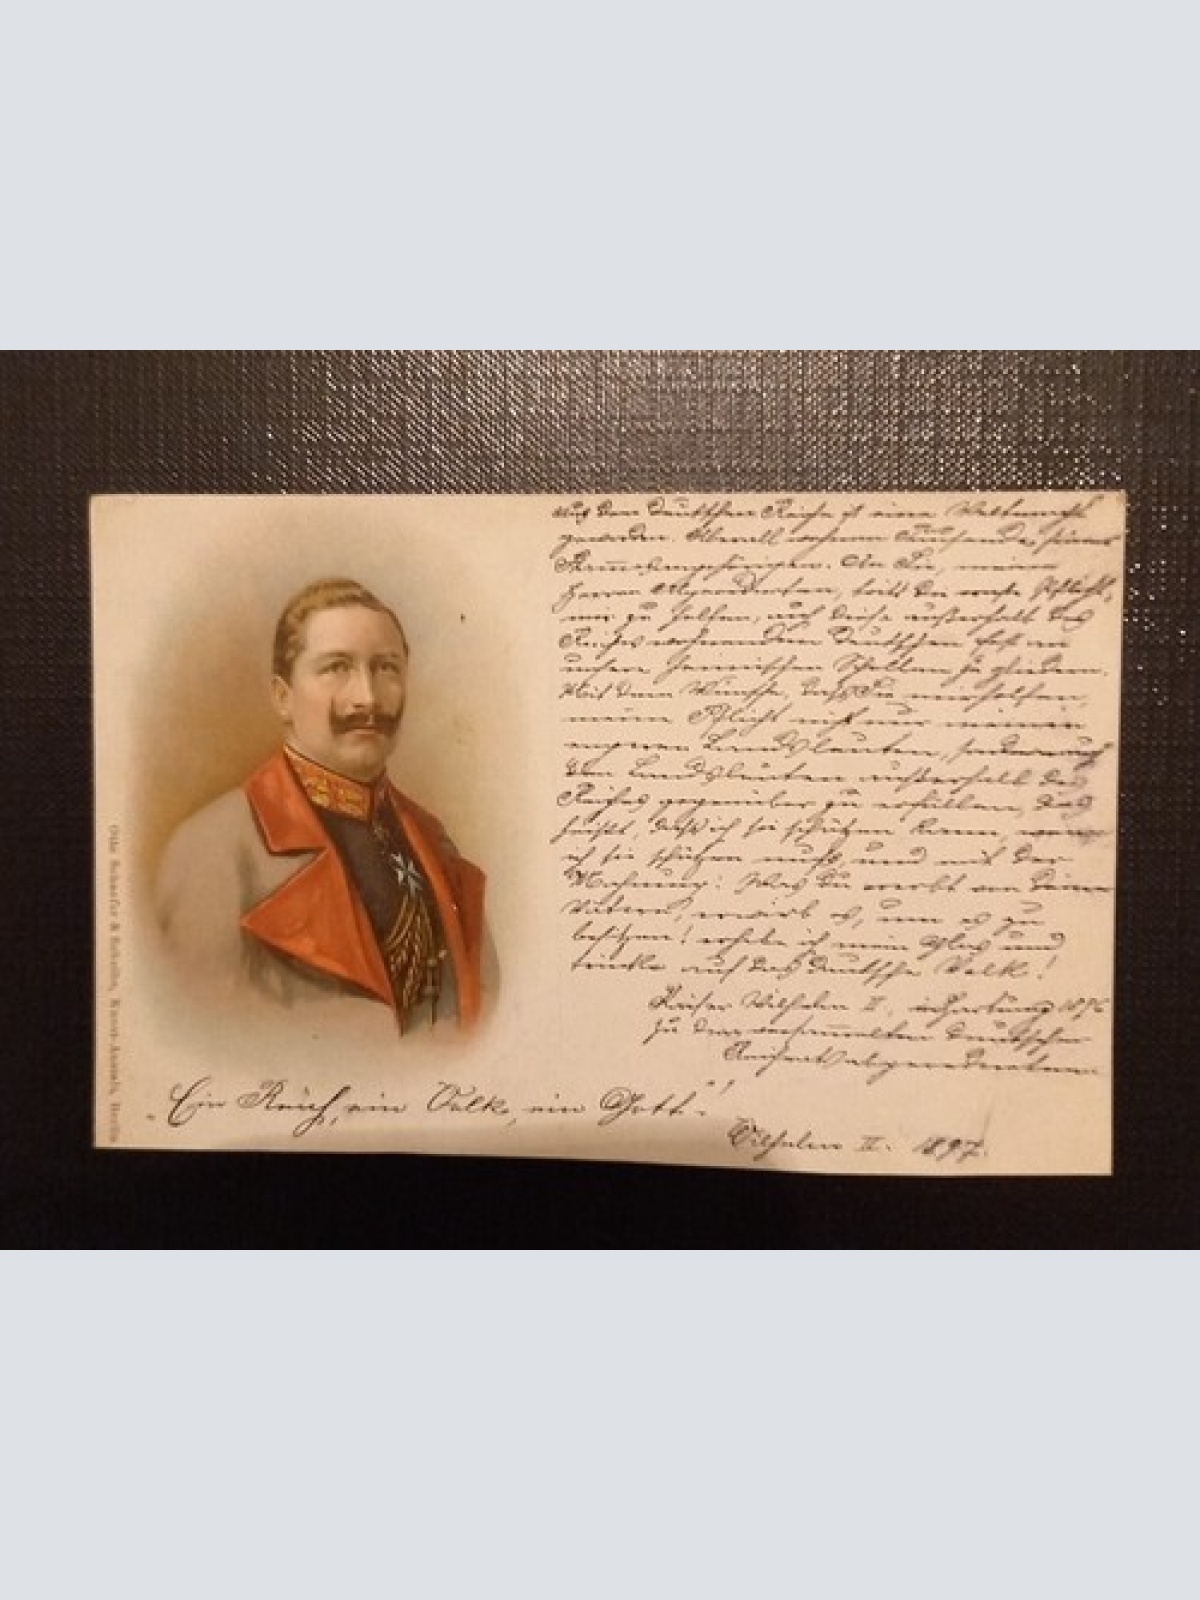 Aus dem Deutschen Reiche ist ein Weltreich
geworden. Überall wohnen Tausende seiner
Stammesangehörigen. An Sie, meine
Herren Abgeordneten, tritt die ernste Pflicht,
mir zu helfen, auch diese außerhalb des
Reiches wohnenden Deutschen fest an
unsere heimischen Schollen zu gliedern.
Mit dem Wunsche, daß Sie mir helfen,
meine Pflicht nicht nur meinen
engeren Landsleuten, sondern auch
den Landsleuten außerhalb des
Reiches gegenüber zu erfüllen, das
heißt, daß ich sie schützen kann, wenn
ich sie schützen muß, und mit der
Mahnung: Was Du ererbt von Deinen
Vätern, erwirb es, um es zu
besitzen! erhebe ich mein Glas und
trinke auf das Deutsche Volk!
Kaiser Wilhelm II. 1896
zu den versammelten Deutschen
Reichstagsabgeordneten
„Ein Reich, ein Volk, ein Gott“!
Wilhelm II. 1897.
Otto Schaefer & Scheibe, Kunst-Anstalt, Berlin